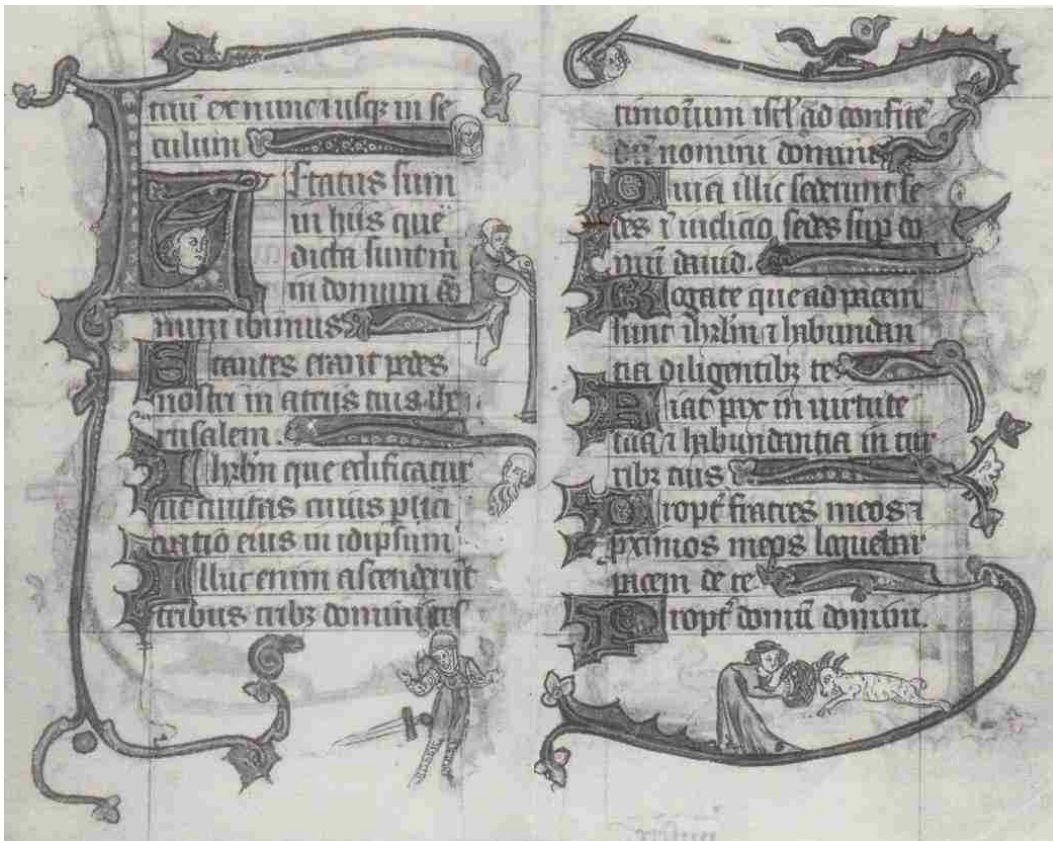 tuū ex nunc ⁊ usqꝫ in se
culum
Letatus sum
in hiis que
dicta sunt m̄
in domum do
mini ibimus
Stantes erant pedes
nostri in atriis tuis ihe
rusalem.
Ihrl̄m que edificatur
ut ciuitas cuius ꝑtici
patio eius in idipsum
Illuc enim ascenderūt
tribus tribꝫ domini tes
timoīum isrl̄ ad confitē
dū nomini domini
Quia illic sederunt se
des ī iudicio sedes suꝑ do
mū dauid.
Rogate que ad pacem
sunt ihrl̄m ⁊ habundan
tia diligentibꝫ te
Fiat pax in uirtute
tua ⁊ habundantia in tur
ribꝫ tuis
Propt̄ fratres meos ⁊
ꝓximos meos loquebar
pacem de te
Propt̄ domū domini.